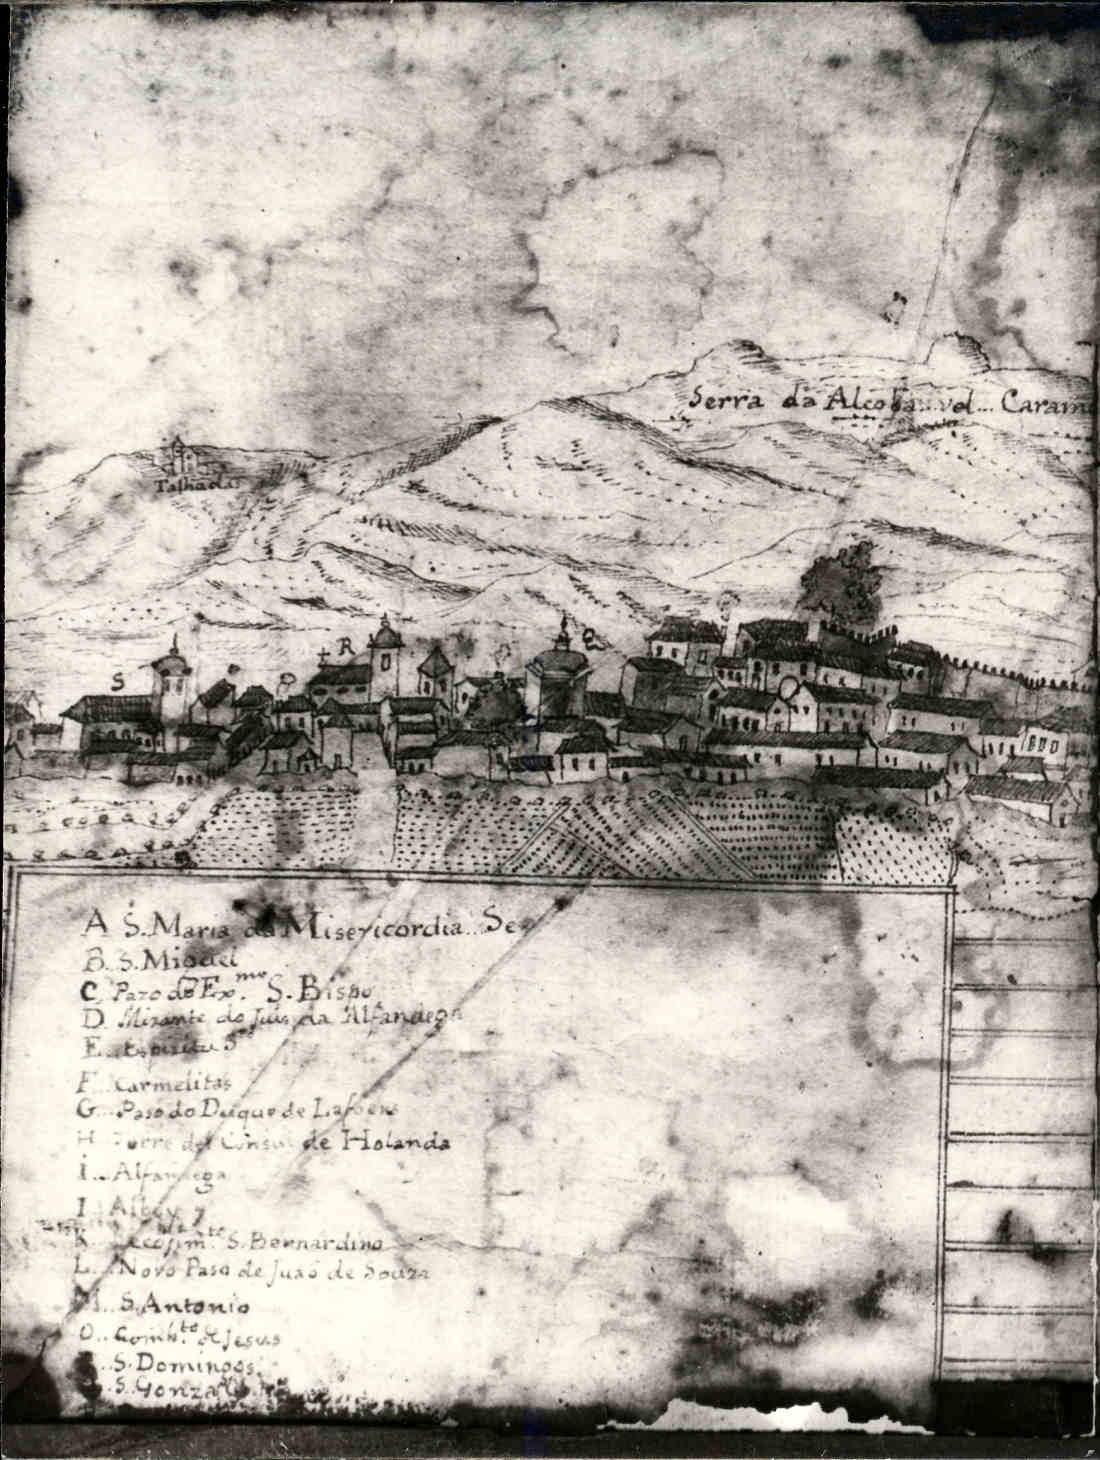 Serra da Alcoba..vel... Caramu
Talhadas
R
Q
S
P
O
A S. Maria da Misericordia.. Se
B.. S. Miguel
C, Pazo do Ex.mo S. Bispo
D. Mirante do Juis da Alfandega
E.. Espiritu S.
F.. Carmelitas
G... Paso do Duque de Lafoens
H.. Torre del Consul de Holanda
I... Alfandega
I
K.. Recojim.to S. Bernardino
L.. Novo Paso de Juaõ de Souza
M.. S. Antonio
O.. Comb.to de Jesus
S. Domingos
S. Gonzalo